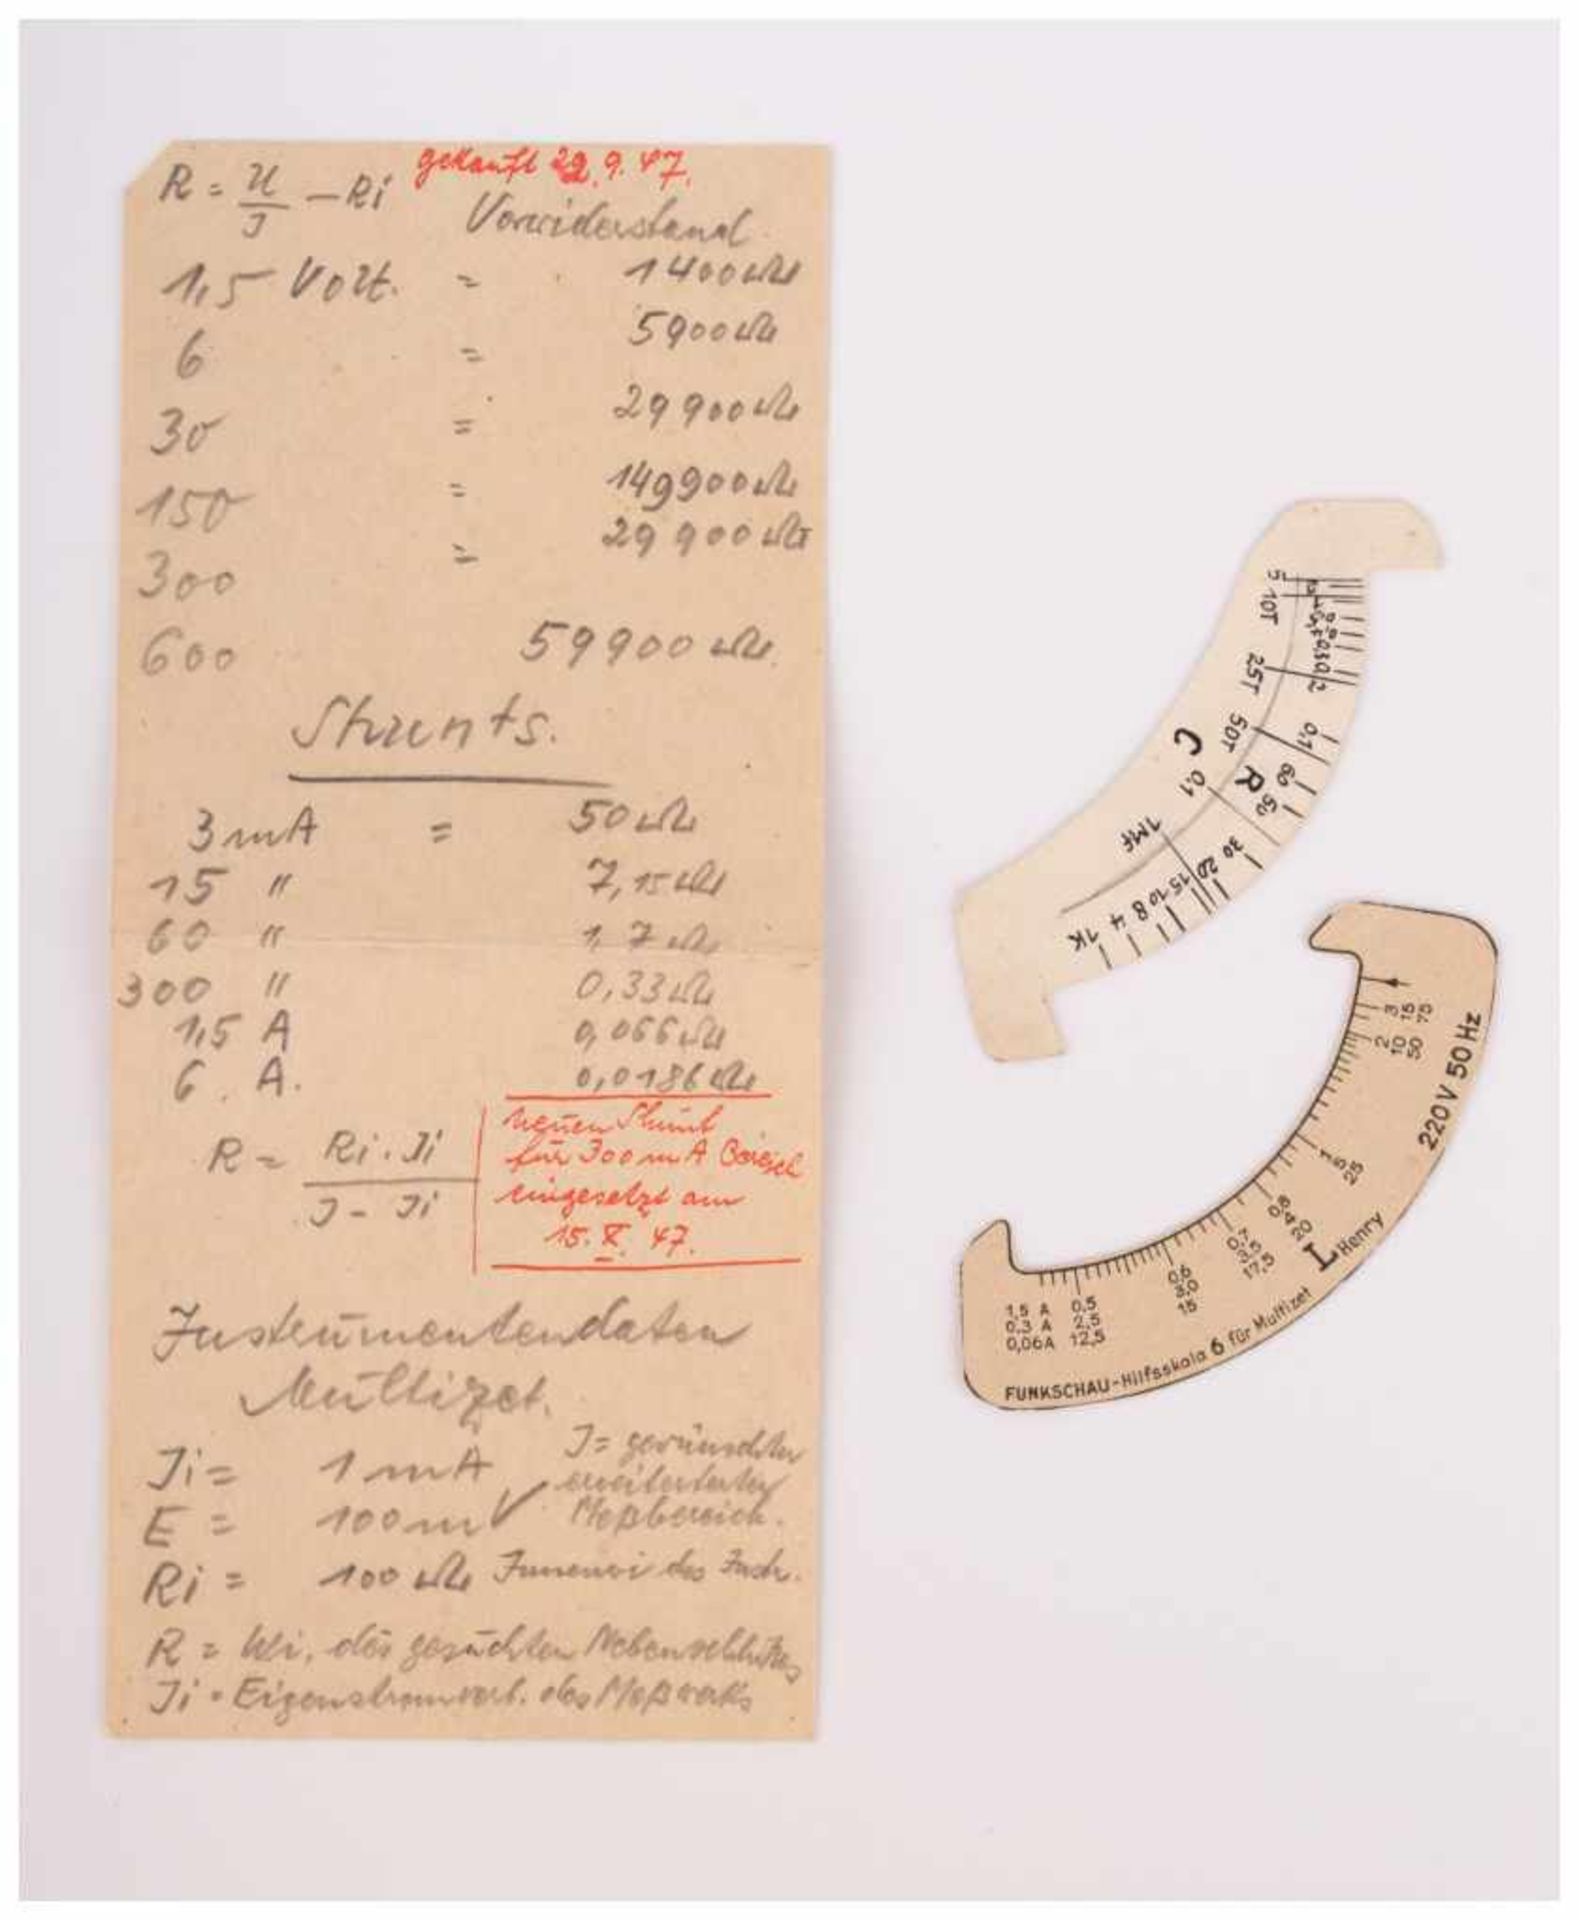 gekauft 29. 9. 47.
R = U/J − Ri
Vorwiderstand
1,5 Volt. = 1400 Ω
6 = 5900 Ω
30 = 29 900 Ω
150 = 149 900 Ω
300 = 29 900 Ω
600 59 900 Ω
Shunts.
3 mA = 50 Ω
15 " 7,15 Ω
60 " 1,7 Ω
300 " 0,33 Ω
1,5 A 0,066 Ω
6. A. 0,0186 Ω
R = Ri . Ji / J − Ji
neuen Shunt
für 300 mA Bereich
eingesetzt am
15. X. 47.
Instrumentendaten
Multizet.
Ji = 1 mA
E = 100 mV
Ri = 100 Ω Innenwi des Instr.
J = gewünschter
erweiterter
Meßbereich.
R = Wi. des gesuchten Nebenschlußes
Ji = Eigenstromverb. des Meßwerks
5 10T 25T 50T 0,1 1MF
C
R
0,2 0,1 60 50 30 20 15 10 8 4 1K
3 15 75
2 10 50
1 5 25
0,8 4,0 20
0,7 3,5 17,5
0,6 3,0 15
1,5 A 0,5
0,3 A 2,5
0,06A 12,5
220V 50Hz
L Henry
FUNKSCHAU-Hilfsskala 6 für Multizet